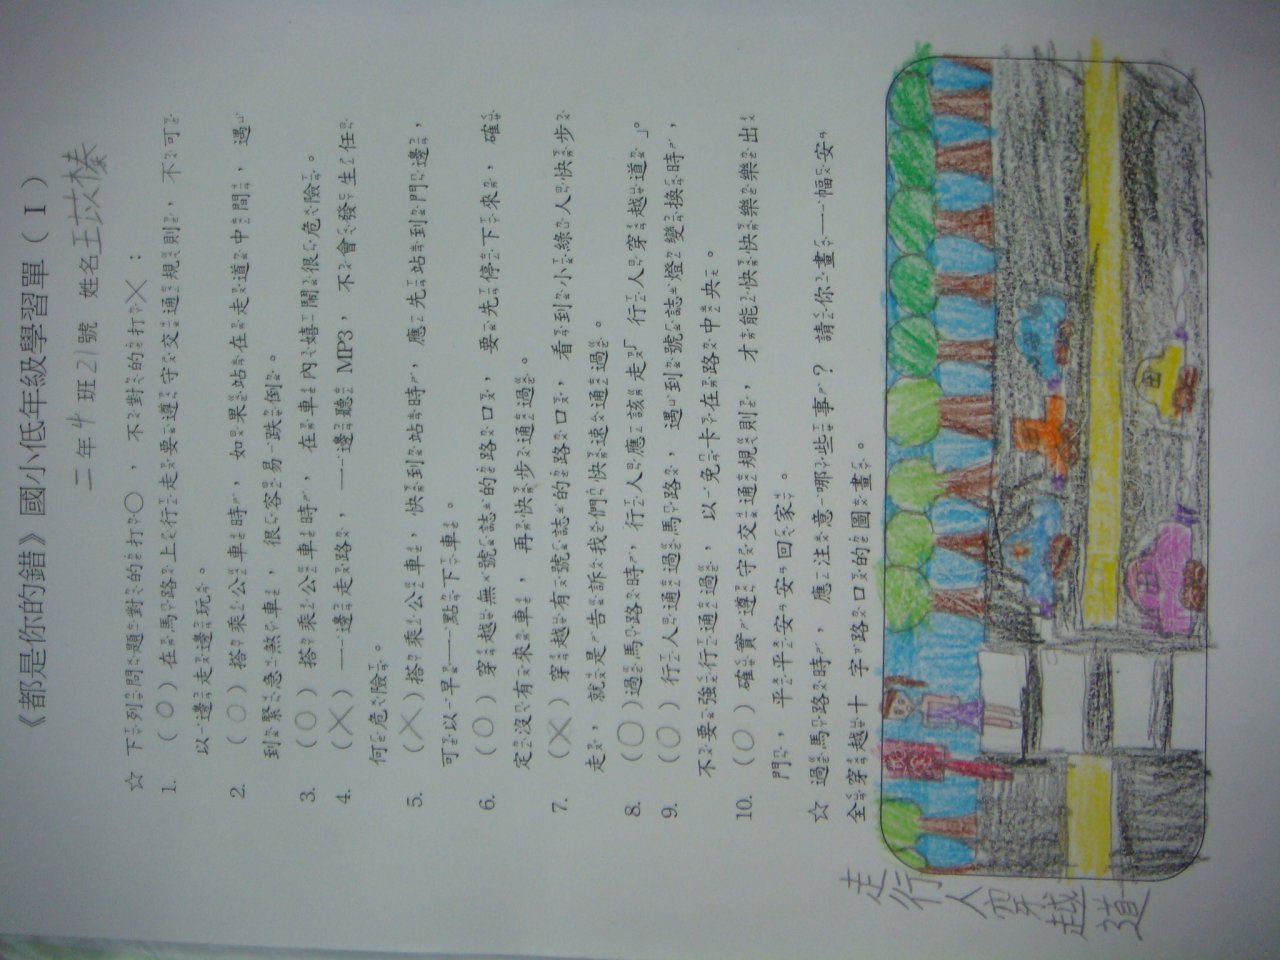 《都是你的錯》國小低年級學習單（I）
二年4班21號 姓名王苡榛
☆ 下列問題對的打○，不對的打╳：
1. （○）在馬路上行走要遵守交通規則，不可
以邊走邊玩。
2. （○）搭乘公車時，如果站在走道中間，遇
到緊急煞車，很容易跌倒。
3. （○）搭乘公車時，在車內嬉鬧很危險。
4. （╳）一邊走路，一邊聽MP3，不會發生任
何危險。
5. （╳）搭乘公車，快到站時，應先站到門邊，
可以早一點下車。
6. （○）穿越無號誌的路口，要先停下來，確
定沒有來車，再快步通過。
7. （╳）穿越有號誌的路口，看到小綠人快步
走，就是告訴我們快速通過。
8. （○）過馬路時，行人應該走「行人穿越道」。
9. （○）行人通過馬路，遇到號誌燈變換時，
不要強行通過，以免卡在路中央。
10. （○）確實遵守交通規則，才能快快樂樂出
門，平平安安回家。
☆ 過馬路時，應注意哪些事？請你畫一幅安
全穿越十字路口的圖畫。
走行人穿越道